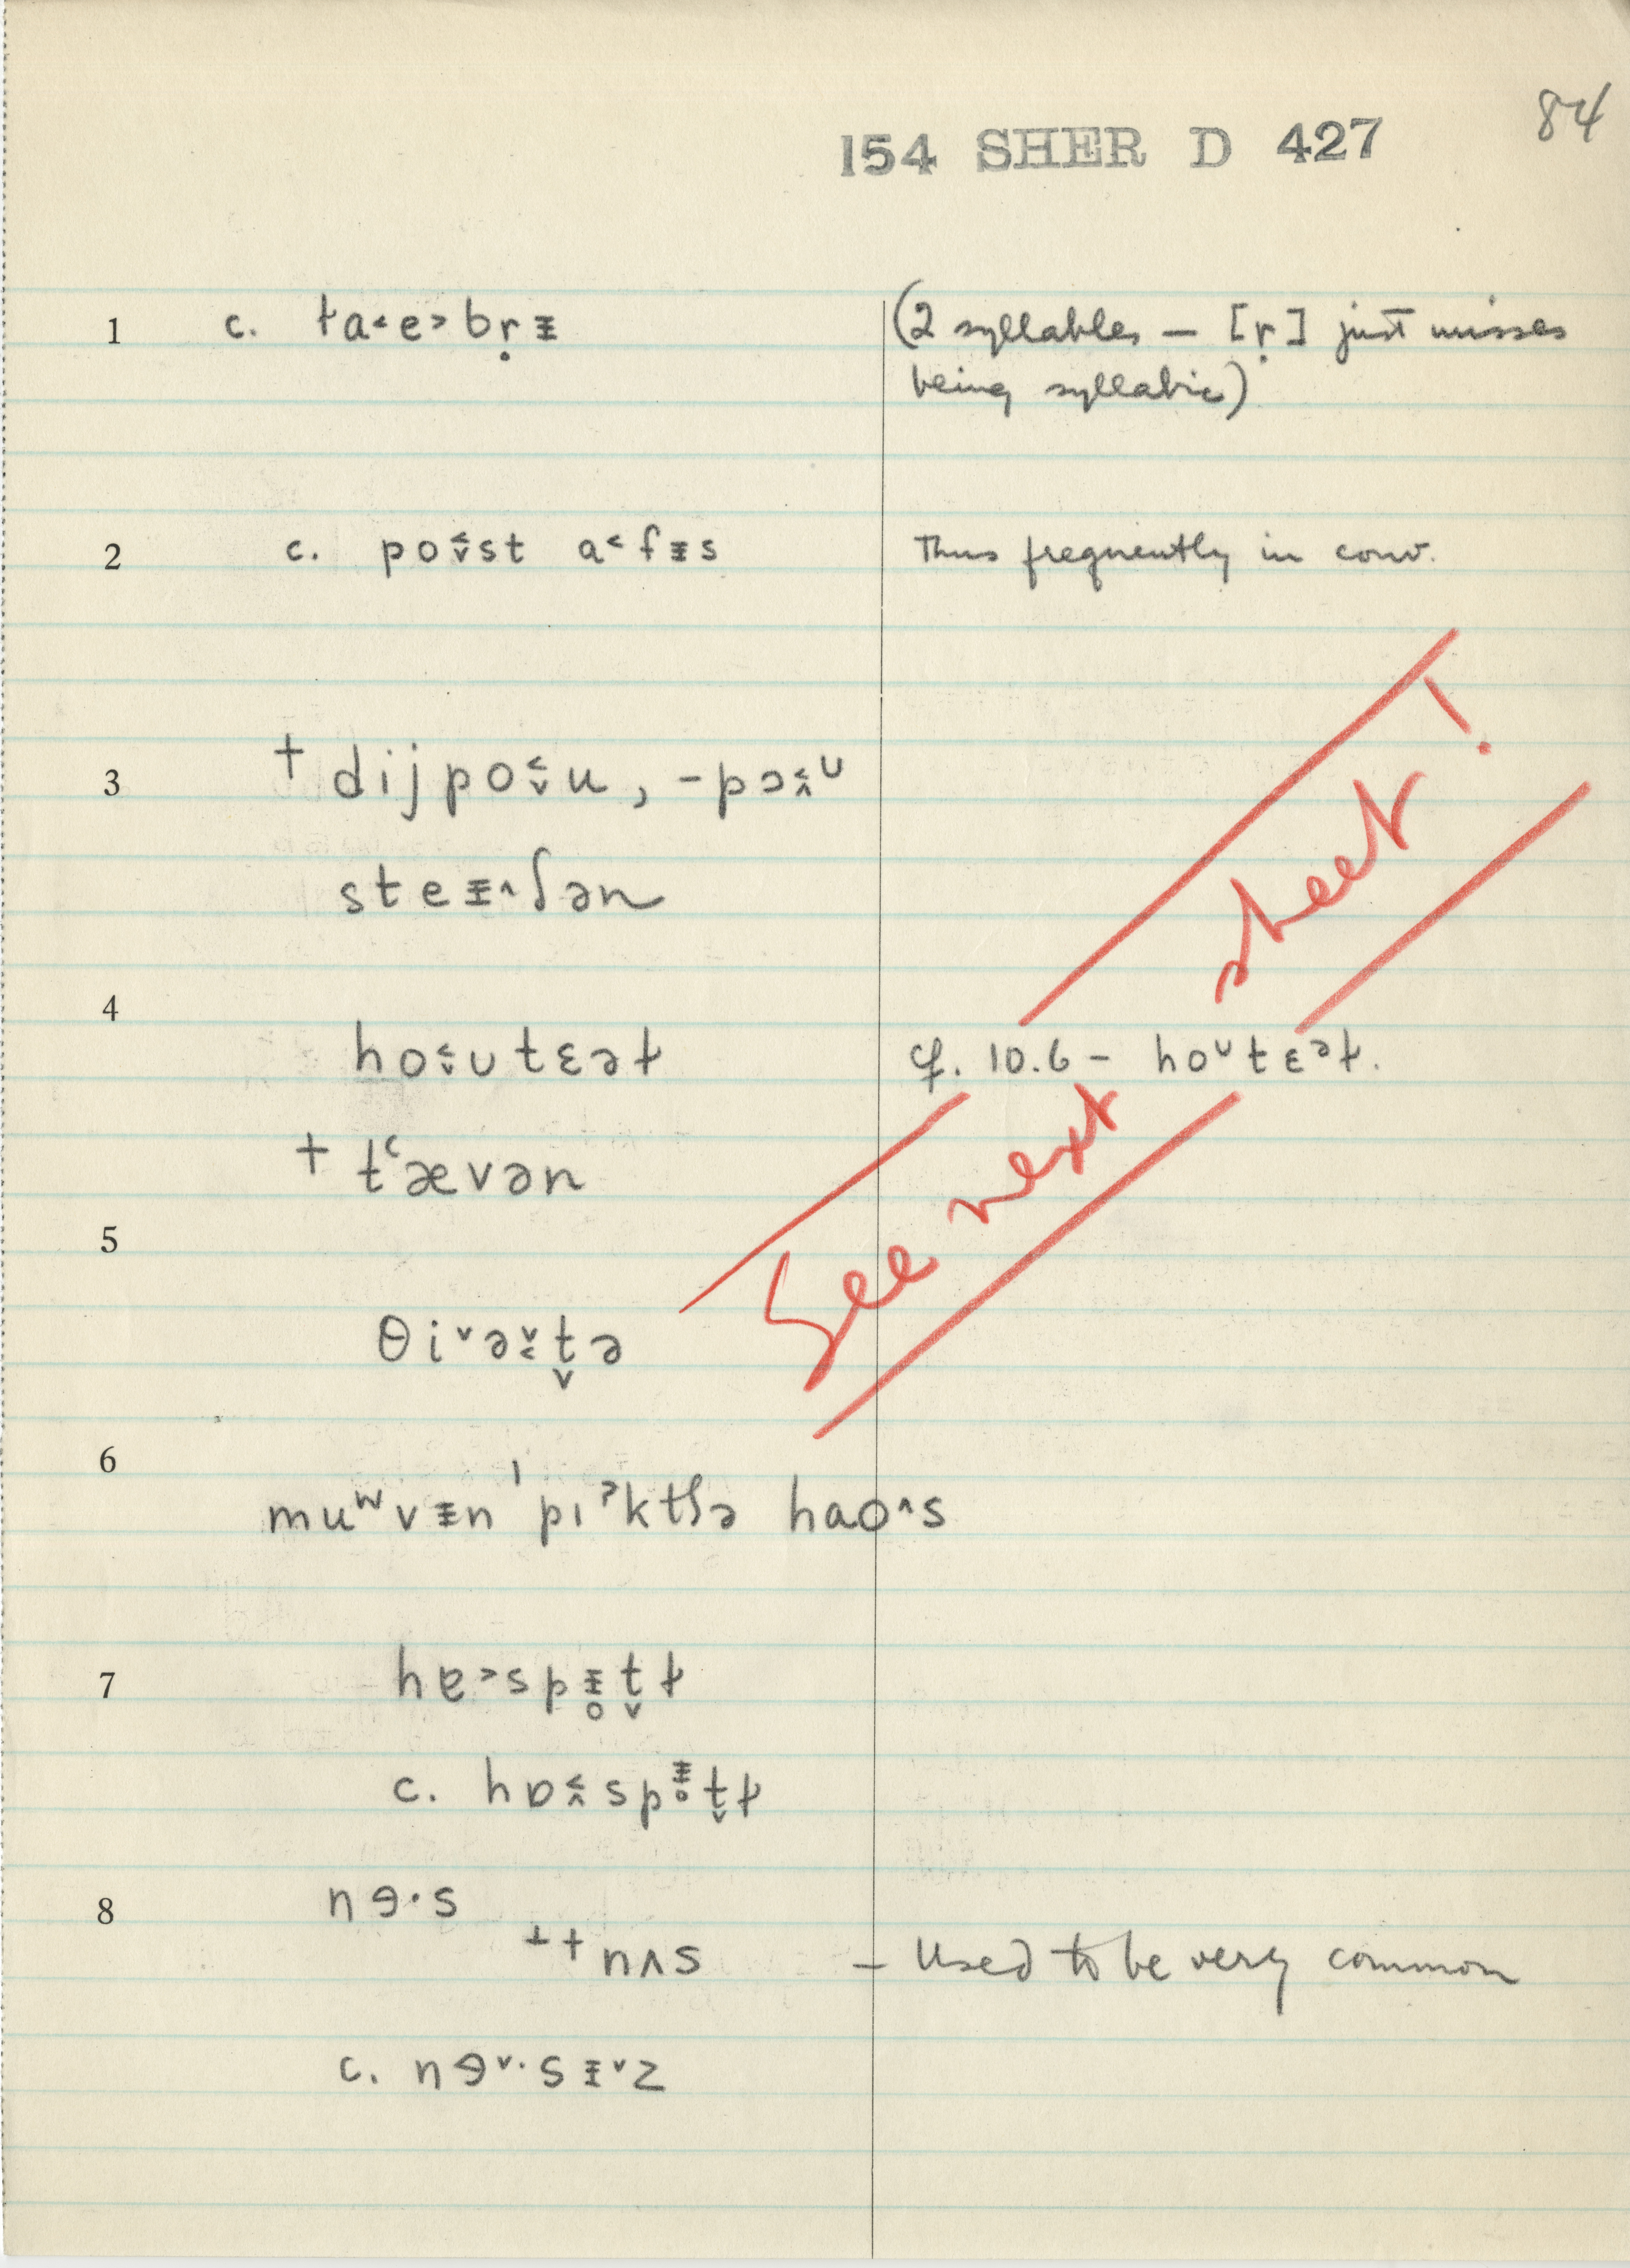 84
154 SHER D 427
1 c. ɫa˂e˃bṛᵻ (2 syllables – [ṛ] just misses
being syllabic)
2 c. po˂˅st a˂fᵻs Thus frequently in conv.
3 † dijpo˂˅u, -pɔ˂˄ᴜ
steᵻ˄ʃən
sheet!
4 ho˂˅ᴜtɛəɫ cf. 10.6 – hoᵁtɛᵊɫ.
† tʿævən
See next
5
θi˅ə˅˂t̬ə
6
muʷvᵻn ˈpɪˀktʃə hao˄s
7 hɐ˃spᵻ̥t̬ɫ
c. hɒ˂˄spᵻ̥t̬ɫ
8 nɘ·s
††nʌs – Used to be very common
c. nɘ˅·sᵻ˅z